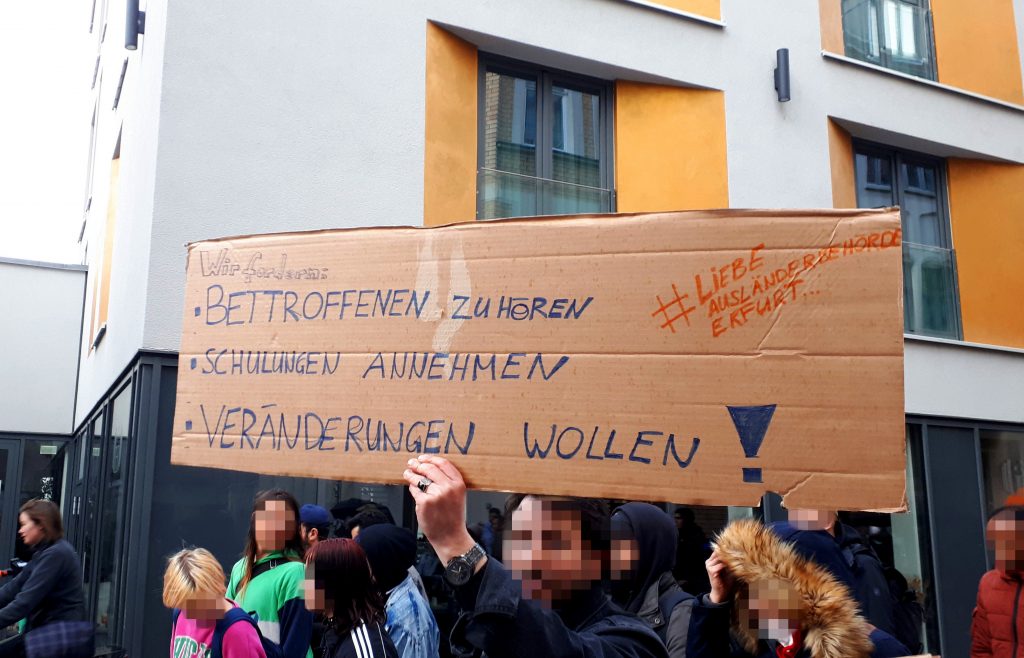 Wir fordern:
• BETTROFFENEN ZUHÖREN
• SCHULUNGEN ANNEHMEN
• VERÄNDERUNGEN WOLLEN !
#LIEBE
AUSLÄNDERBEHÖRDE
ERFURT...